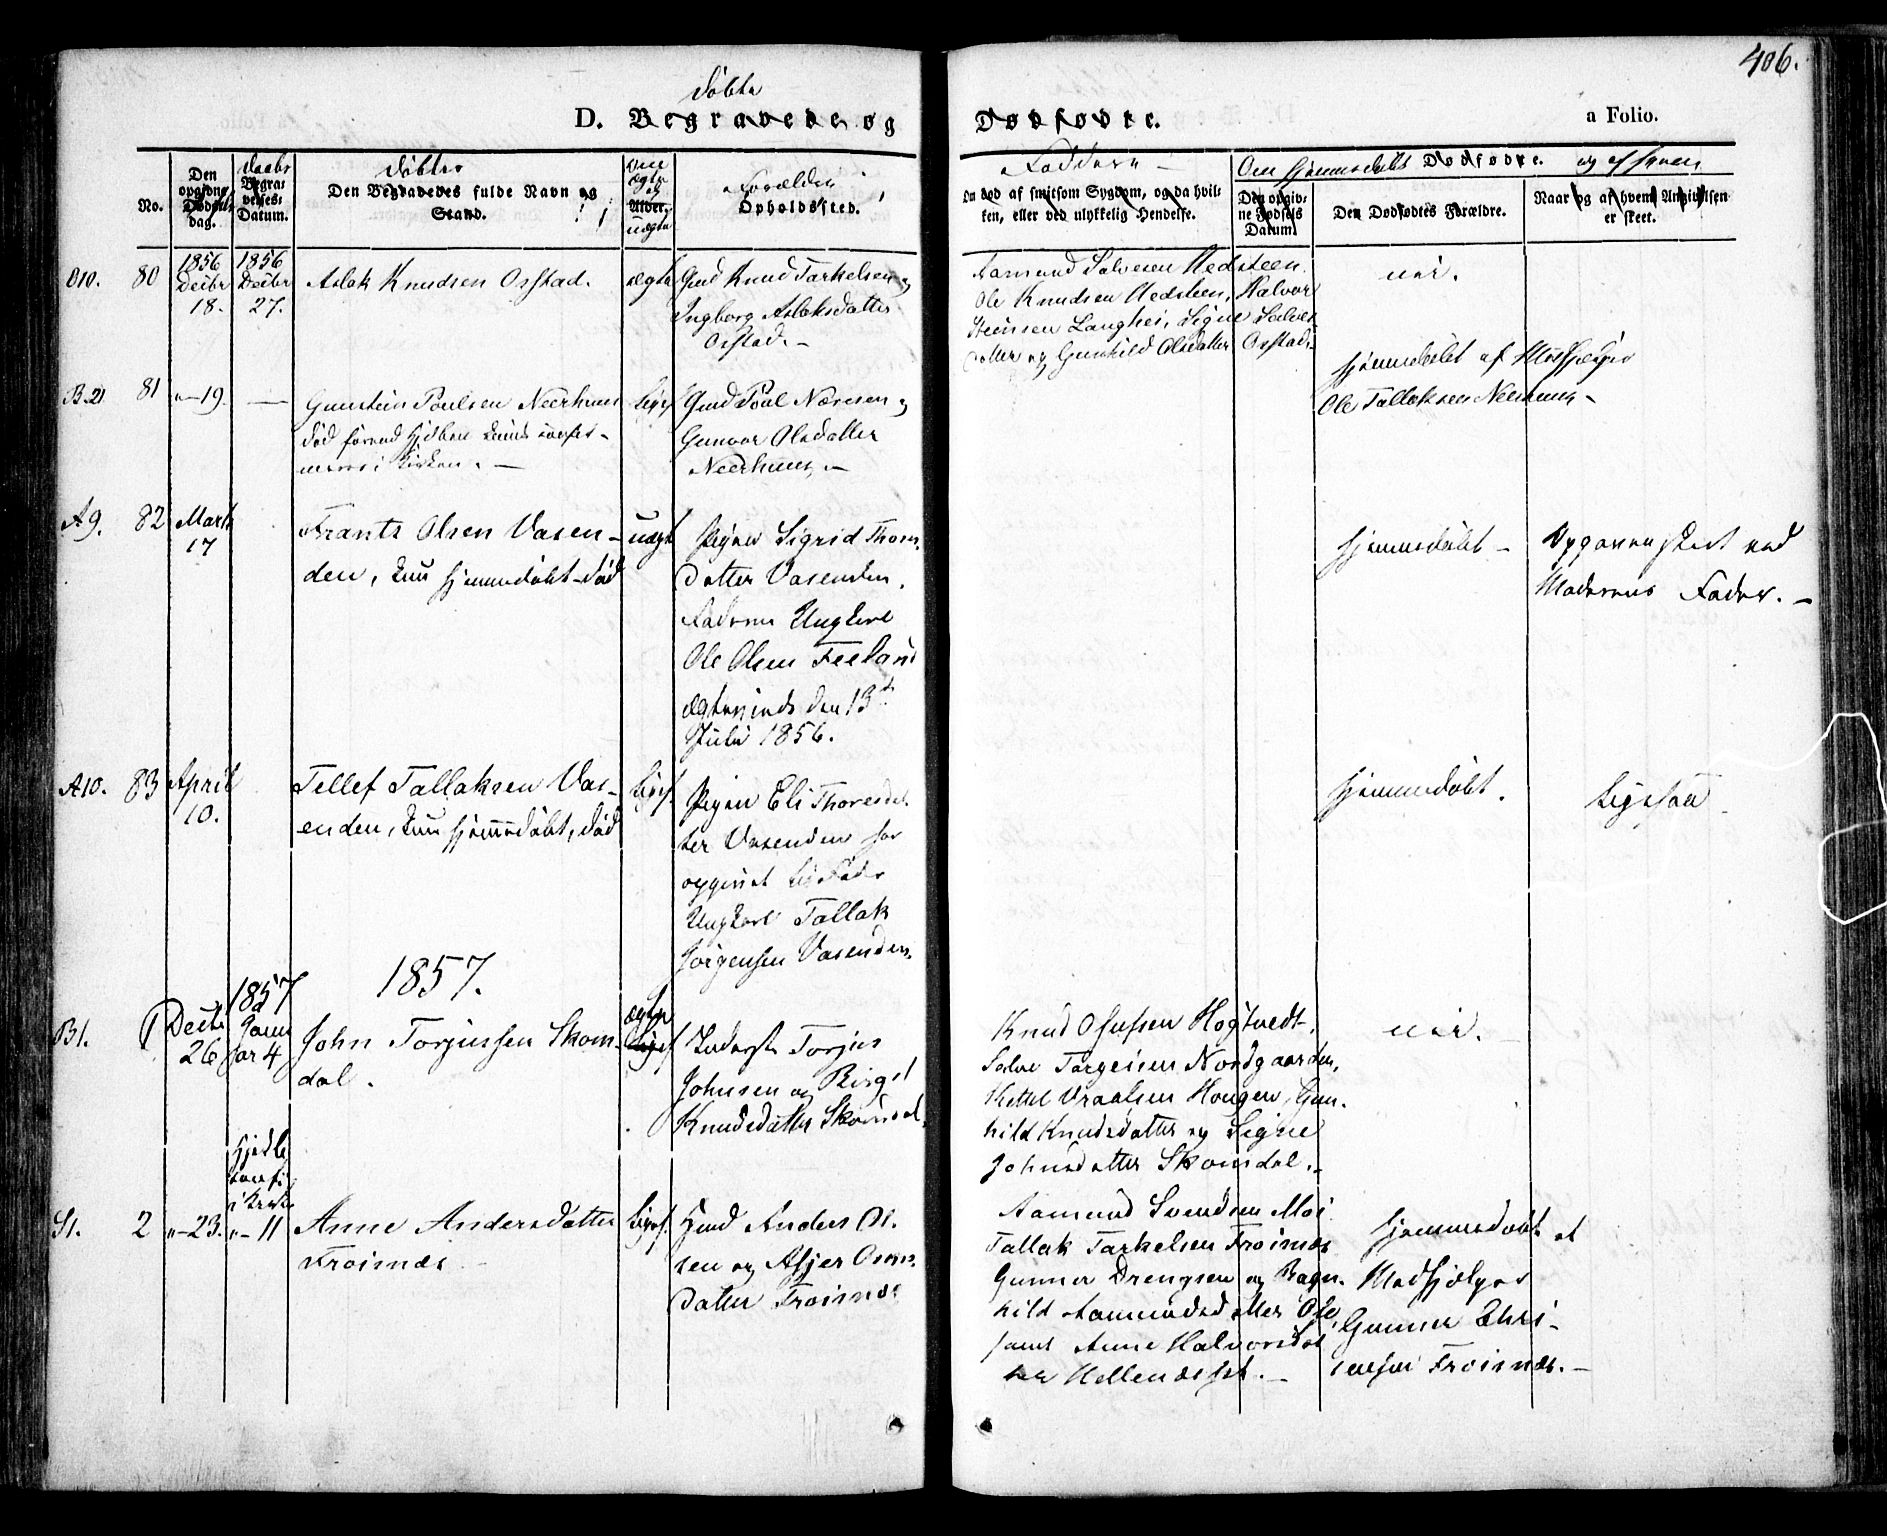 406.
Döbte
D. Begravede og Dødfødte. a Folio.
No.
Den opgivne Dødsdag.
Daabs
Begravelses-Datum.
Döbtes
Den Begravedes fulde Navn og Stand.
Om ægte eller uægte
Alder.
Forældre
Opholdssted.
Faddere —
Om død af smitsom Sygdom, og da hvilken, eller ved ulykkelig Hendelse.
Om hjemmedøbt Dødfødte. og af hvem
Den opgivne Fødsels Datum.
Den Dødfødtes Forældre.
Naar og af hvem Angivelsen er skeet.
O10. 80 1856 Decbr 18. 1856 Decbr 27.
Aslak Knudsen Osstad.
ægte
Gmd Knud Tarkelsen og
Ingborg Aslaksdatter
Osstad. —
Aamund Salvesen Hedsteen
Ole Knudsen Hedsteen, Halvor
Steensen Langhei, Signe Salves
datter og Gunhild Olsdatter Osstad.
nei.
B.21 81 " — 19. —
Gunstein Poulsen Neerhuus
død førend hjdben kunde confir-
meres i Kirken. —
ligs
Gmd Poul Næresen og
Gunvor Olsdatter
Neerhuus. —
hjemmedøbt af
Ole Tallaksen Neerhuus —
A9. 82 Marts 17
Frants Olsen Vasen-
den, kun hjemmedöbt - död
uægt
Pigen Sigrid Thom.
datter Vasenden.
Faderen Ungkarl
Ole Olsen Feeland
den 13de
Juli 1856.
hjemmedöbt —
Opgaven skeet ved
Moderens Fader. —
A10. 83 April 10.
Tellef Tallaksen Vas-
enden, kun hjemmedöbt, död
ligs.
Pigen Eli Thoresdat
ter Vasenden har
opgivet til Fader
Ungkarl Tallak
Jörgensen Vasenden.
hjemmedöbt.
ligesaa
1857.
B1. 1 Decbr 26 1857 Januar 4
John Torjussen Skom-
dal.
ægte
Inderst Torjus
Johnsen og Birgit
Knudsdatter Skomdal.
Knud Olufsen Hogtvedt.
Salve Targeisen Nordgaarden,
Kettel Vraalsen Hougen, Gun-
hild Knudsdatter og Signe
Johnsdatter Skomdal. —
nei.
S1. 2 " — 23. " — 11
hjdb
i Kirk
Anne Andersdatter
Froisnæs
ligs.
Gmd Anders Ol-
sen og Asjer Osm.
datter Froisnæs
Aamund Svendsen Moi
Tallak Tarkelsen Froisnæs
Gunner Drengsen og Ragn-
hild Aamundsdatter Ose,
samt Anne Halvorsdat
ter Hellenæsset. —
hjemmedöbt af
Medhjelper
Gunner Chri-
Froisnæs. —